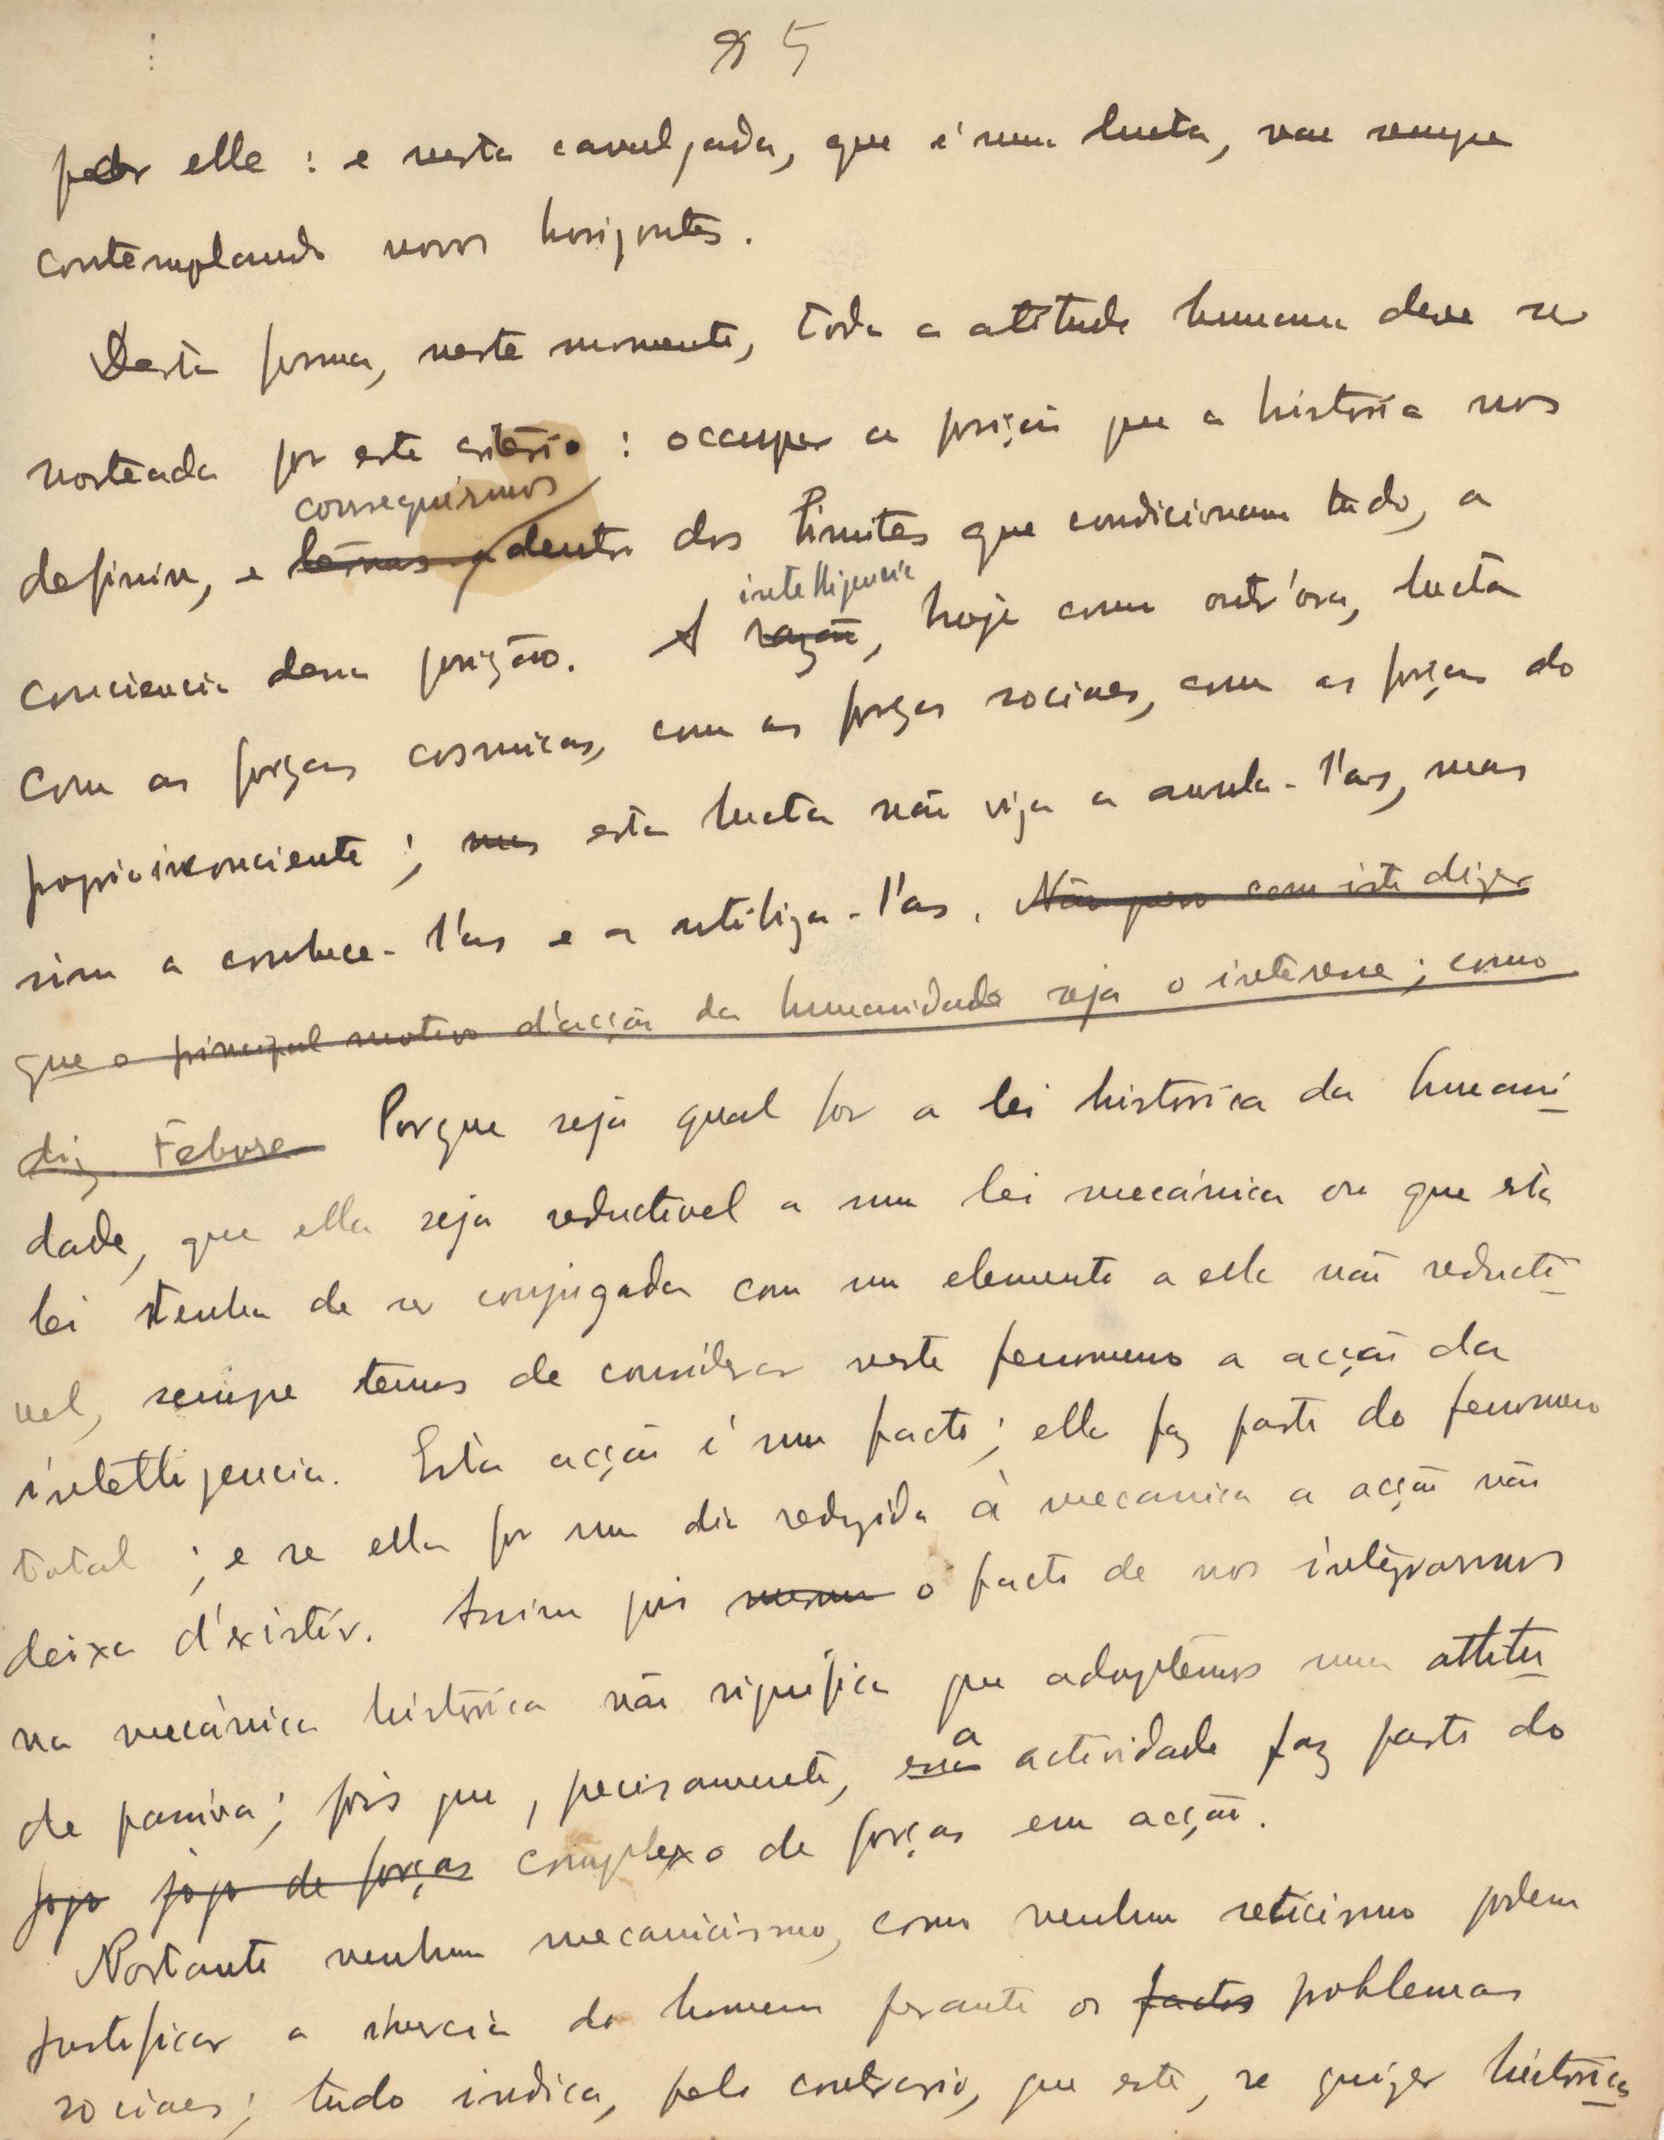 5
por elle : e nesta cavalgada, que é uma lucta, vae sempre
contemplando novos horizontes.
Desta forma, neste momento, toda a attitude humana deve ser
norteada por este critério : occupar a posição que a história nos
conseguirmos
definir, e termos dentro dos limites que condicionam tudo, a
intelligencia
conciencia dessa posição. A razão, hoje como outr'ora, lucta
com as forças cosmicas, com as forças sociaes, com as forças do
proprio inconciente ; mas esta lucta não viza a anula-l'as, mas
sim a conhece-l'as e a utiliza-l'as. Não quero com isto dizer
que o principal motivo d'acção da humanidade seja o interesse ; como
diz Porque seja qual for a lei historica da humani-
dade, que ella seja reductivel a uma lei mecánica ou que esta
lei tenha de ser conjugada com um elemento a ella não reducti-
vel, sempre temos de considerar neste fenomeno a acção da
intelligencia. Esta acção é um facto ; ella faz parte do fenomeno
total ; e se ella for um dia reduzida à mecanica a acção não
deixa d'existir. Assim pois mesmo o facto de nos integrarmos
na mecánica histórica não significa que adoptemos uma attitu-
a
de passiva ; pois que, precisamente, essa actividade faz parte do
jogo jogo de forças complexo de forças em acção.
Portanto nenhum mecanicismo, como nenhum seticismo podem
justificar a inercia do homem perante os factos problemas
sociaes ; tudo indica, pelo contrario, que este, se quizer histórica-